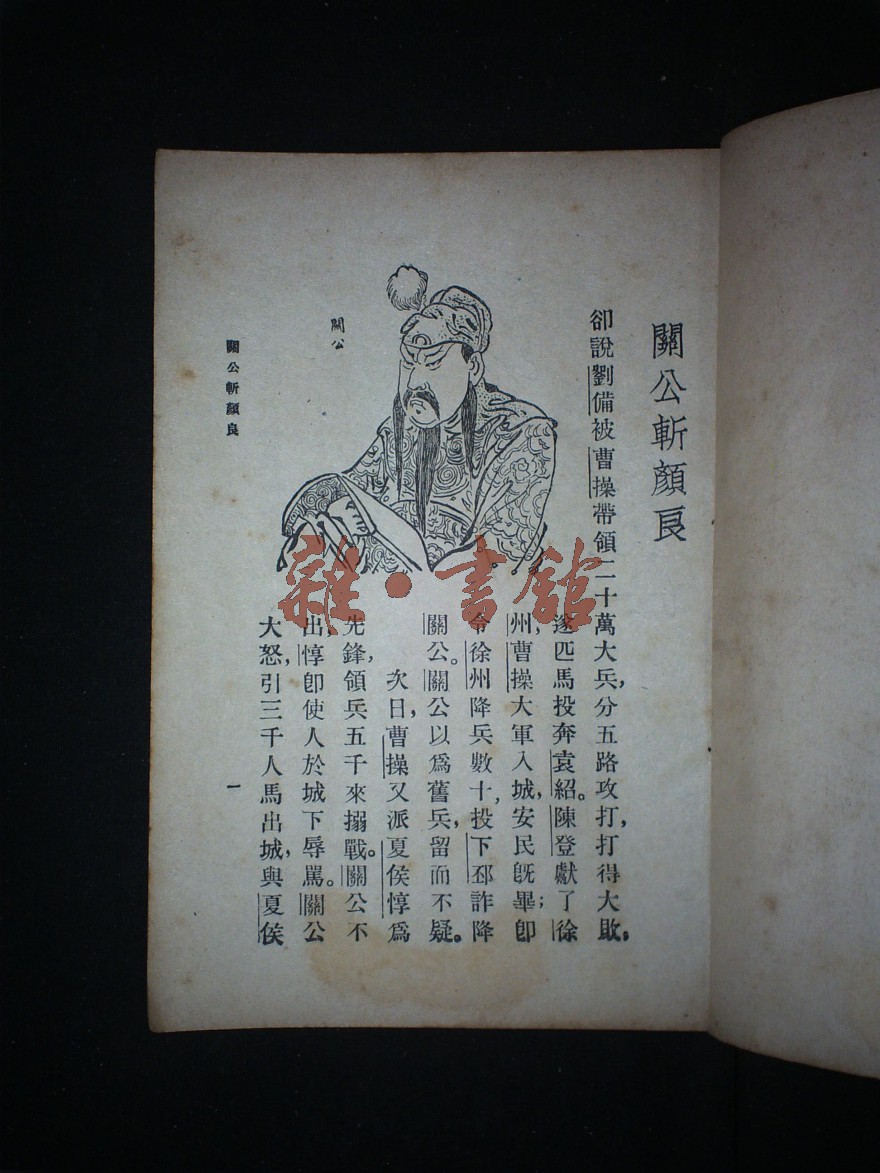 關公斬顏良
卻說劉備被曹操帶領二十萬大兵，分五路攻打，打得大敗，
遂匹馬投奔袁紹。陳登獻了徐
州，曹操大軍入城，安民旣畢；卽
令徐州降兵數十，投下邳詐降
關公。關公以爲舊兵，留而不疑。
次日，曹操又派夏侯惇爲
先鋒，領兵五千來搦戰。關公不
出，惇卽使人於城下辱罵。關公
大怒，引三千人馬出城，與夏侯
關公
關公斬顏良
一
雜·書館